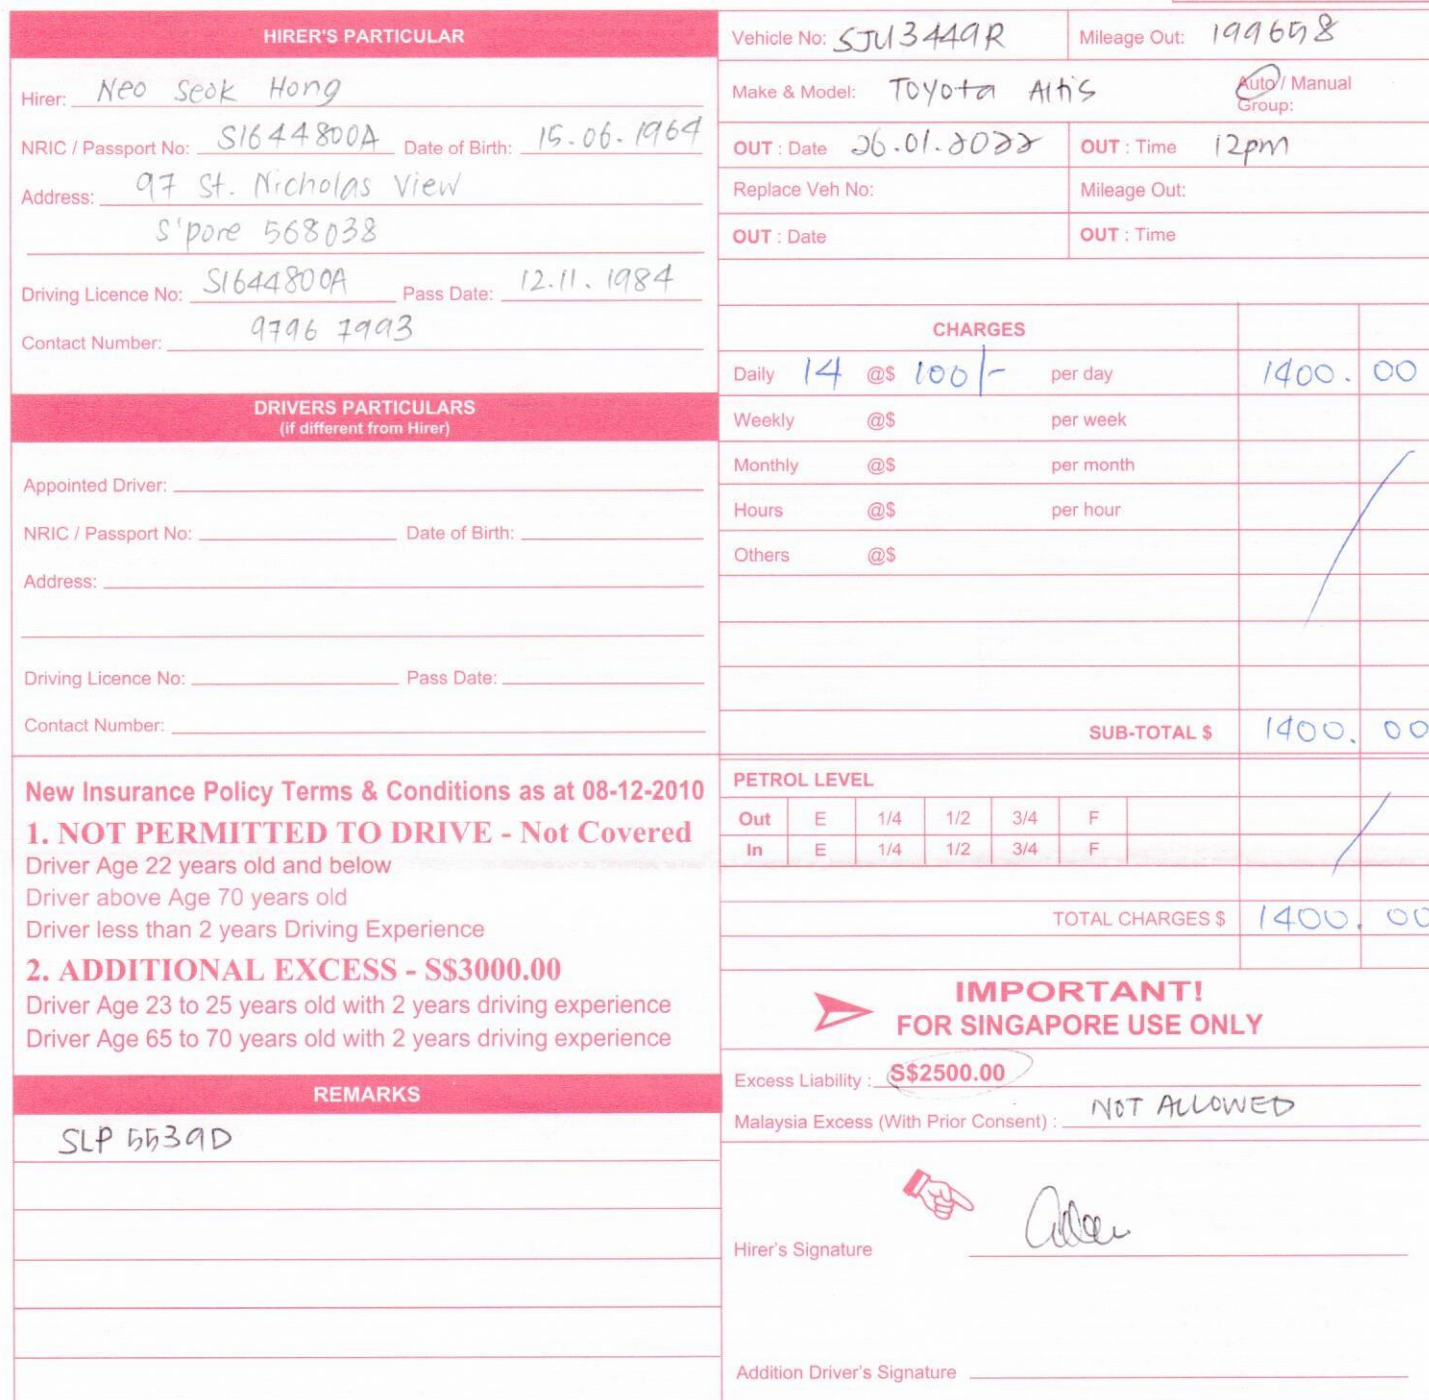 HIRER'S PARTICULAR
Hirer: Neo Seok Hong
NRIC / Passport No: S1644800A Date of Birth: 15.06.1964
Address: 97 St. Nicholas View
S'pore 568038
Driving Licence No: S1644800A Pass Date: 12.11.1984
Contact Number: 9796 7993
DRIVERS PARTICULARS
(if different from Hirer)
Appointed Driver:
NRIC / Passport No: Date of Birth:
Address:
Driving Licence No: Pass Date:
Contact Number:
New Insurance Policy Terms & Conditions as at 08-12-2010
1. NOT PERMITTED TO DRIVE - Not Covered
Driver Age 22 years old and below
Driver above Age 70 years old
Driver less than 2 years Driving Experience
2. ADDITIONAL EXCESS - S$3000.00
Driver Age 23 to 25 years old with 2 years driving experience
Driver Age 65 to 70 years old with 2 years driving experience
REMARKS
SLP 5539D
Vehicle No: SJU3449R Mileage Out: 199658
Make & Model: Toyota Altis Auto / Manual
Group:
OUT : Date 26.01.2022 OUT : Time 12pm
Replace Veh No: Mileage Out:
OUT : Date OUT : Time
CHARGES
Daily 14 @$ 100/- per day 1400. 00
Weekly @$ per week
Monthly @$ per month
Hours @$ per hour
Others @$
SUB-TOTAL $ 1400. 00
PETROL LEVEL
Out E 1/4 1/2 3/4 F
In E 1/4 1/2 3/4 F
TOTAL CHARGES $ 1400. 00
IMPORTANT!
FOR SINGAPORE USE ONLY
Excess Liability : S$2500.00
Malaysia Excess (With Prior Consent) : NOT ALLOWED
Hirer's Signature
Addition Driver's Signature